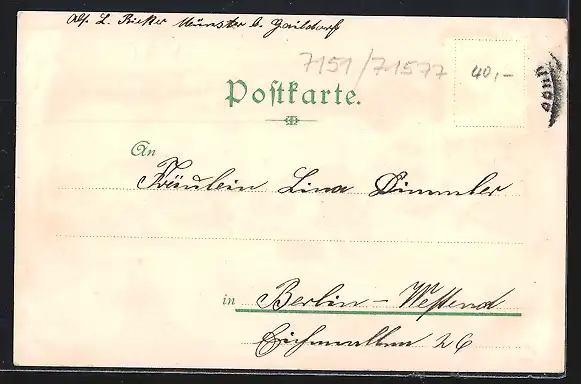 Abs. L. Bieker Münster b. Gaildorf
7151/71577
40,-
Postkarte.
An
Fräulein Lina Dimmler
in Berlin - Westend
Eichenallee 26